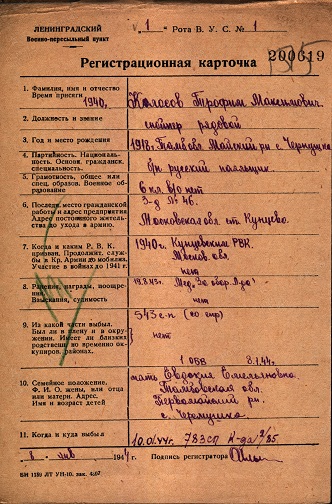 ЛЕНИНГРАДСКИЙ
Военно-пересыльный пункт
1 Рота В. У. С. № 1
200619
Регистрационная карточка
1. Фамилия, имя и отчество
Время присяги 1940,
Колосов Трофим Максимович
2. Должность и звание
рядовой
3. Год и место рождения
1918. Тамбовс. Майский рн с. Чернушка
4. Партийность. Националь-
ность. Основн. граждanск.
специальность.
бп русский
5. Грамотность, общее или
спец. образов. Военное об-
разование
6 кл. в/о нет
6. Последн. место гражданской
работы и адрес предприятия
Адрес постоянного житель-
ства до ухода в армию.
З-д № 46.
Московская обл ст. Кунцево.
7. Когда и каким Р. В. К.
призван. Продолжит. служ-
бы в Кр. Армии до мобилиз.
Участие в войнах до 1941 г.
1940 г. Кунцевским РВК
Москов. обл.
нет
8. Ранение, награды, поощре-
ния.
Взыскания, судимость
19.8.43. Мед. За обор. Л-да
нет
9. Из какой части выбыл.
Был ли в плену и в окру-
жении. Имеет ли близких
родствен. во временно ок-
купиров. районах.
543 с-п
нет
1 ОВВ 8.1.44.
10. Семейное положение.
Ф. И. О. жены, или отца
или матери. Адрес.
Имя и возраст детей
мать Евдокия Емельяновна
Тамбовская обл.
Первомайский рн.
с. Чернушка
11. Когда и куда выбыл
10.01.44г. 783 СП К-да 9/85
8 " янв 194 4 г. Подпись регистратора
БИ 1180 ЛТ УП-10. зак. 4:67